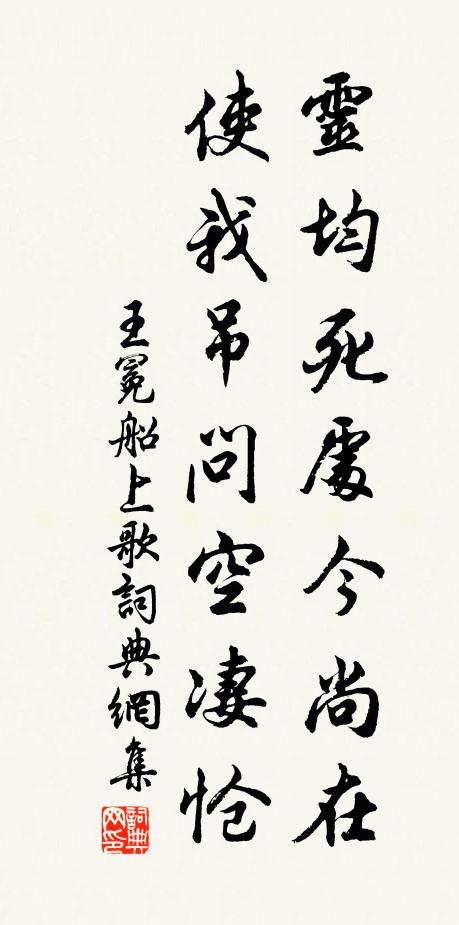 靈均死處今尚在
使我吊問空淒愴
王冕船上歌詞典網集
詞典網印